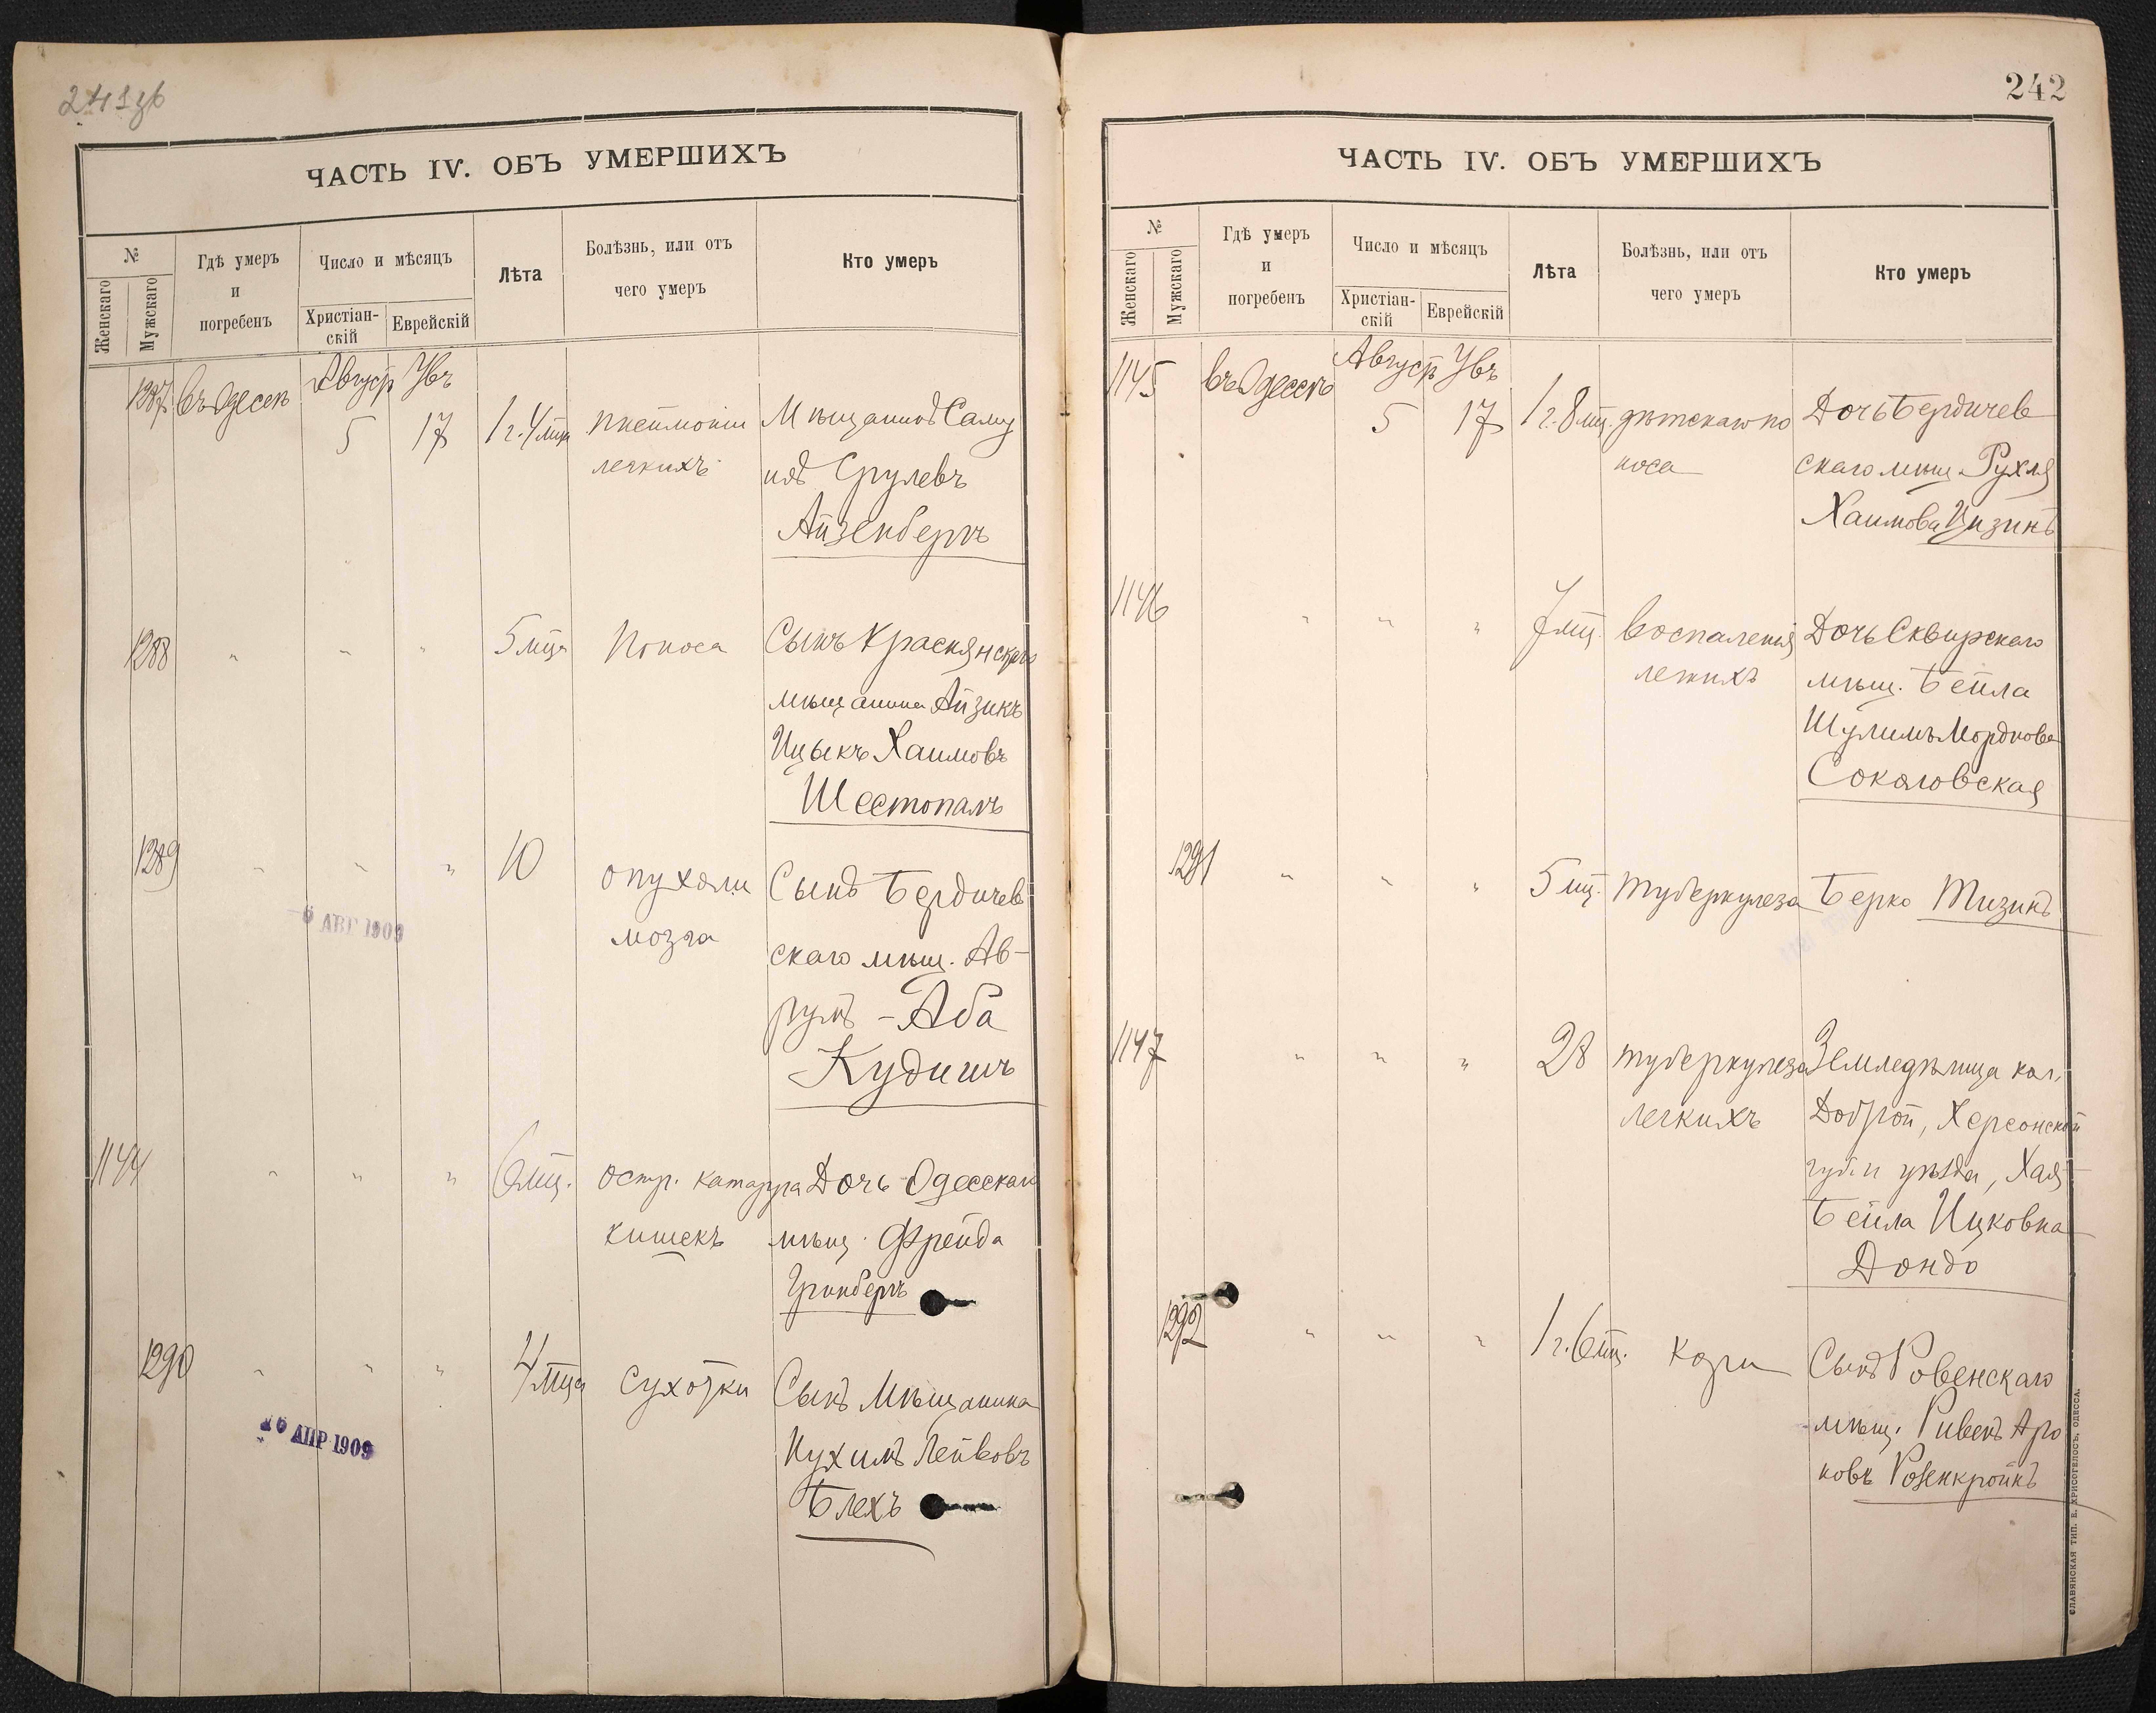 241 об
ЧАСТЬ IV. ОБЪ УМЕРШИХЪ
№
Женскаго
Мужскаго
Гдѣ умеръ
и
погребенъ
Число и мѣсяцъ
Христіан-
скій
Еврейскій
Лѣта
Болѣзнь, или отъ
чего умеръ
Кто умеръ
1287 въ Одессѣ Август Увъ
5 17 1 г. 4 мца пнеймоніи Мѣщанинъ Саму
легкихъ илъ Срулевъ
Айзенбергъ
1288 " " " 5 мца Поноса Сынъ Краснянскаго
мѣщанина Айзикъ
Ицыкъ Хаимовъ
Шестопалъ
1289 " " " 10 опухоли Сынъ Бердичев
мозга скаго мѣщ. Ав-
румъ - Аба
Кудишъ
-6 АВГ 1909
1144 " " " 6 мц. остр. катарра Дочь Одесскаго
кишекъ мѣщ. Фрейда
Гринбергъ
1290 " " " 4 мца сухотки Сынъ Мѣщанина
Нухимъ Лейбовъ
Блехъ
16 АПР 1909
242
ЧАСТЬ IV. ОБЪ УМЕРШИХЪ
№
Женскаго
Мужскаго
Гдѣ умеръ
и
погребенъ
Число и мѣсяцъ
Христіан-
скій
Еврейскій
Лѣта
Болѣзнь, или отъ
чего умеръ
Кто умеръ
1145 въ Одессѣ Август Увъ
5 17 1 г. 8 мц. дѣтскаго по Дочь Бердичев
носа скаго мѣщ. Рухля
Хаимова Цизинъ
1146 " " " 7 мц. воспаленія Дочь Сквирскаго
легкихъ мѣщ. Бейла
Шулимъ Мордкова
Соколовская
1291 " " " 5 мц. туберкулеза Берко Тизинъ
1147 " " " 28 туберкулеза Земледѣлица кол.
легкихъ Доброй, Херсонской
губ. и уѣзда, Хая
Бейла Ицковна
Дондо
1292 " " " 1 г. 6 мц. кори Сынъ Ровенскаго
мѣщ. Ривенъ Аро
новъ Розенкройнъ
СЛАВЯНСКАЯ ТИП. Е. ХРИСОГЕЛОСЪ, ОДЕССА.